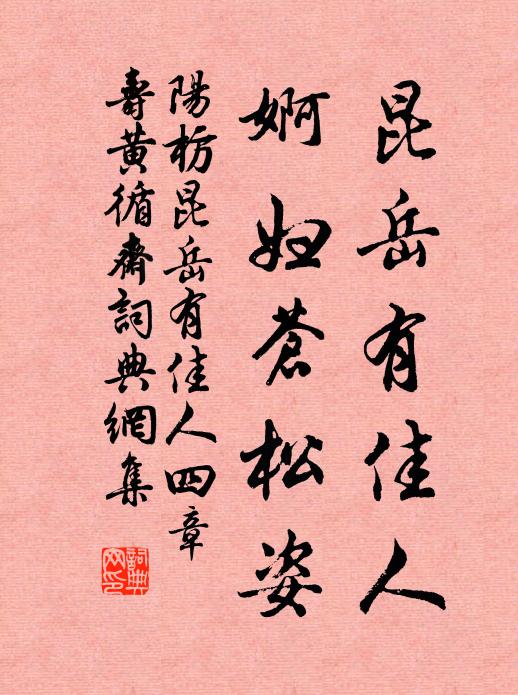 昆岳有佳人
婀妇蒼松姿
陽枋昆岳有佳人四章
壽黄循齋詞典網集
詞典网印